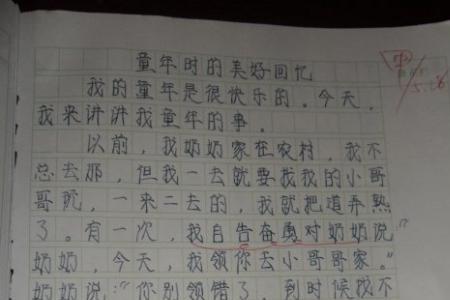 童年时的美好回忆
我的童年是很快乐的。今天,
我来讲讲我童年的事。
以前,我奶奶家在农村,我不
总去那,但我一去就要找我的小哥
哥玩,一来二去的,我就把道弄熟
了。有一次,我自告奋勇对奶奶说“
奶奶,今天,我领你去小哥哥家。”
奶奶说:“你别领错了,到时候找不